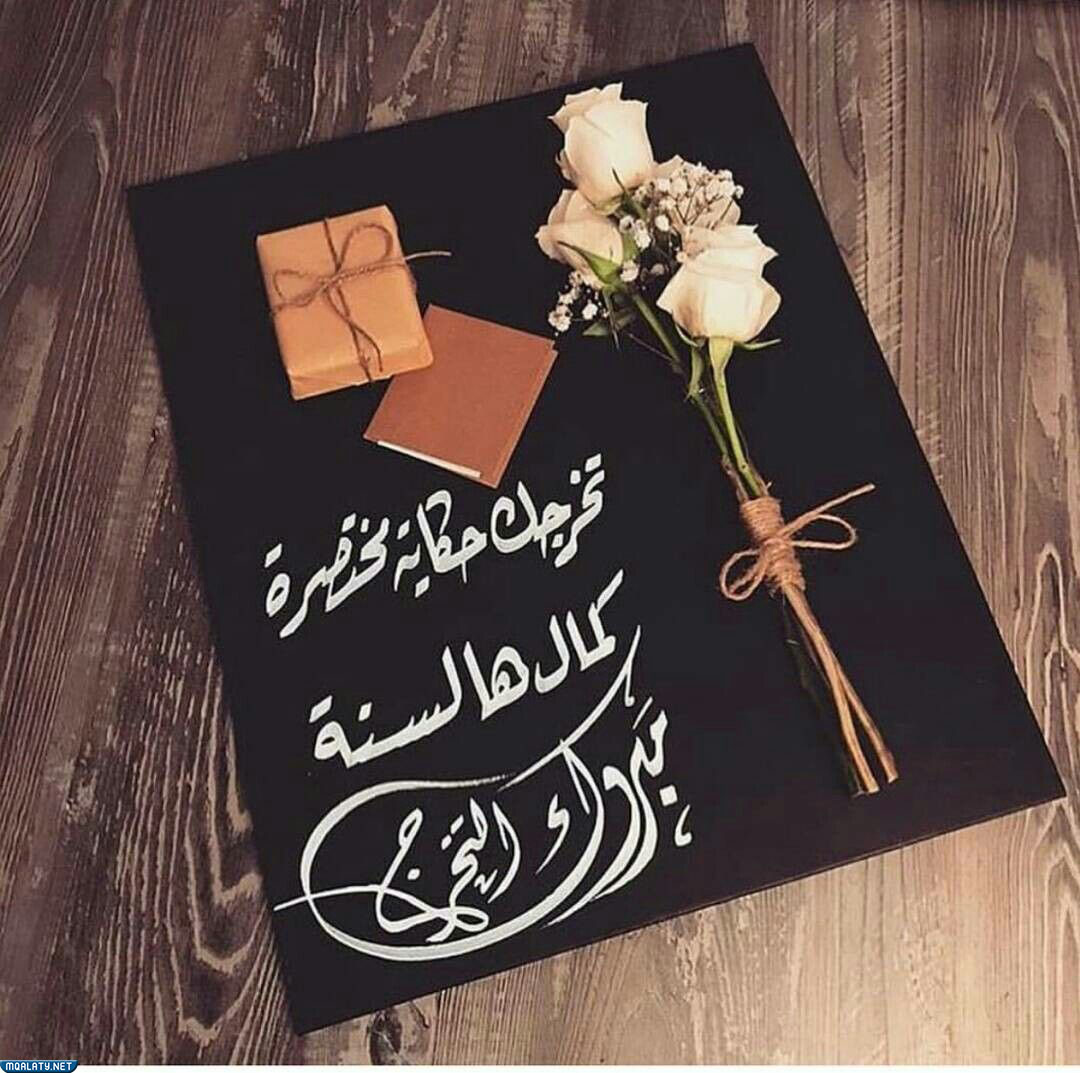 تخرجك حكاية مختصرة
كمال هالسنة
مبروك التخرج
MQALATY.NET